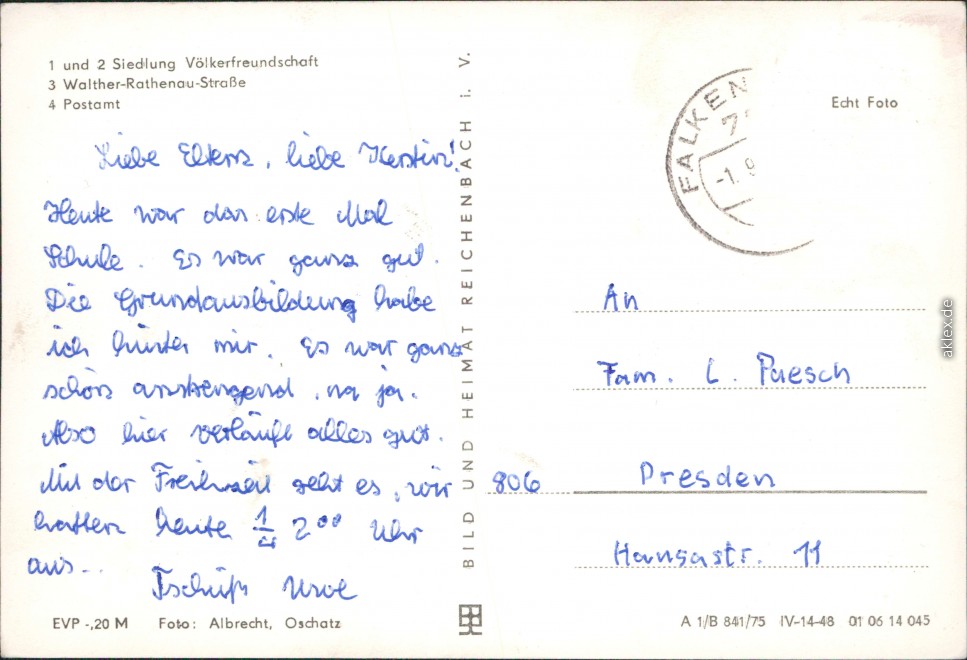 1 und 2 Siedlung Völkerfreundschaft
3 Walther-Rathenau-Straße
4 Postamt
Liebe Eltern, liebe Kerstin!
Heute war das erste Mal
Schule. Es war ganz gut.
Die Grundausbildung habe
ich hinter mir. Es war ganz
schön anstrengend, na ja.
Also hier verläuft alles gut.
Mit der Freihzeit geht es, wir
hatten heute 2⁰⁰ Uhr
aus...
Tschüß Uwe
EVP -,20 M Foto: Albrecht, Oschatz
BILD UND HEIMAT REICHENBACH i. V.
FALKEN
7
-1. 9
Echt Foto
An
Fam. L. Paesch
806 Dresden
Hansastr. 11
A 1/B 841/75 IV-14-48 01 06 14 045
aklex.de